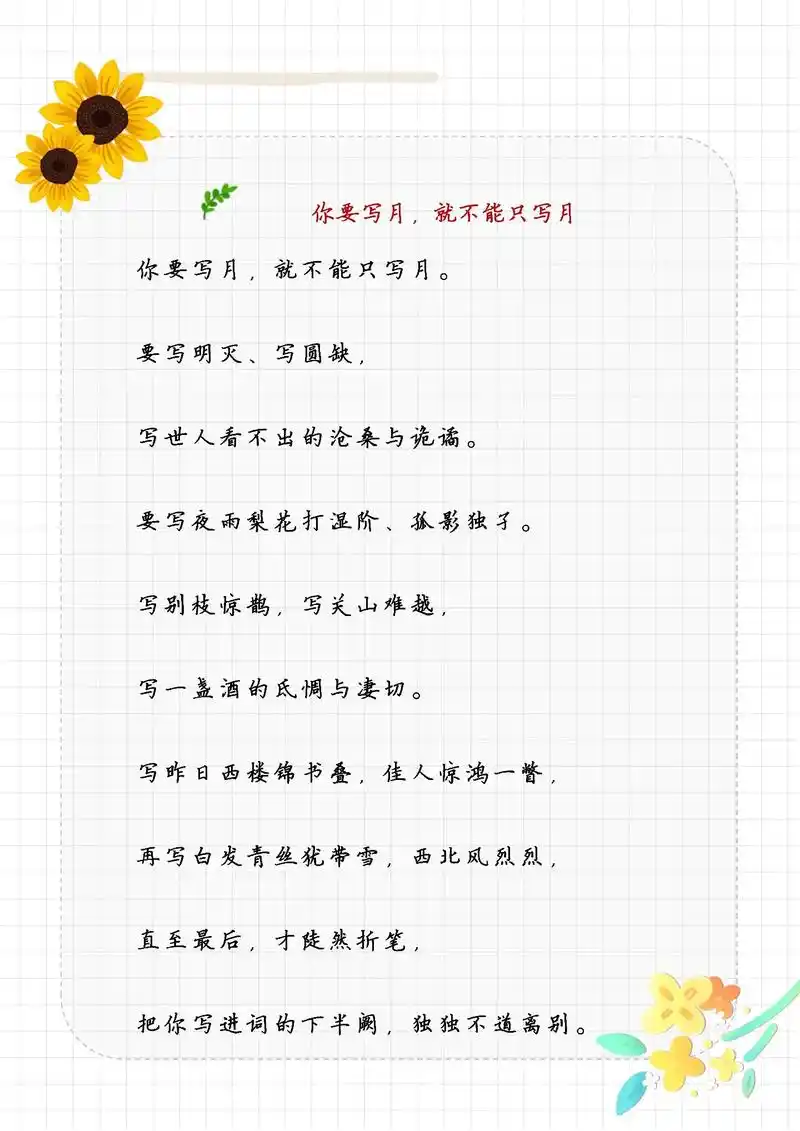 你要写月，就不能只写月
你要写月，就不能只写月。
要写明灭、写圆缺，
写世人看不出的沧桑与诡谲。
要写夜雨梨花打湿阶、孤影独孑。
写别枝惊鹊，写关山难越，
写一盏酒的氐惆与凄切。
写昨日西楼锦书叠，佳人惊鸿一瞥，
再写白发青丝犹带雪，西北风烈烈，
直至最后，才陡然折笔，
把你写进词的下半阙，独独不道离别。